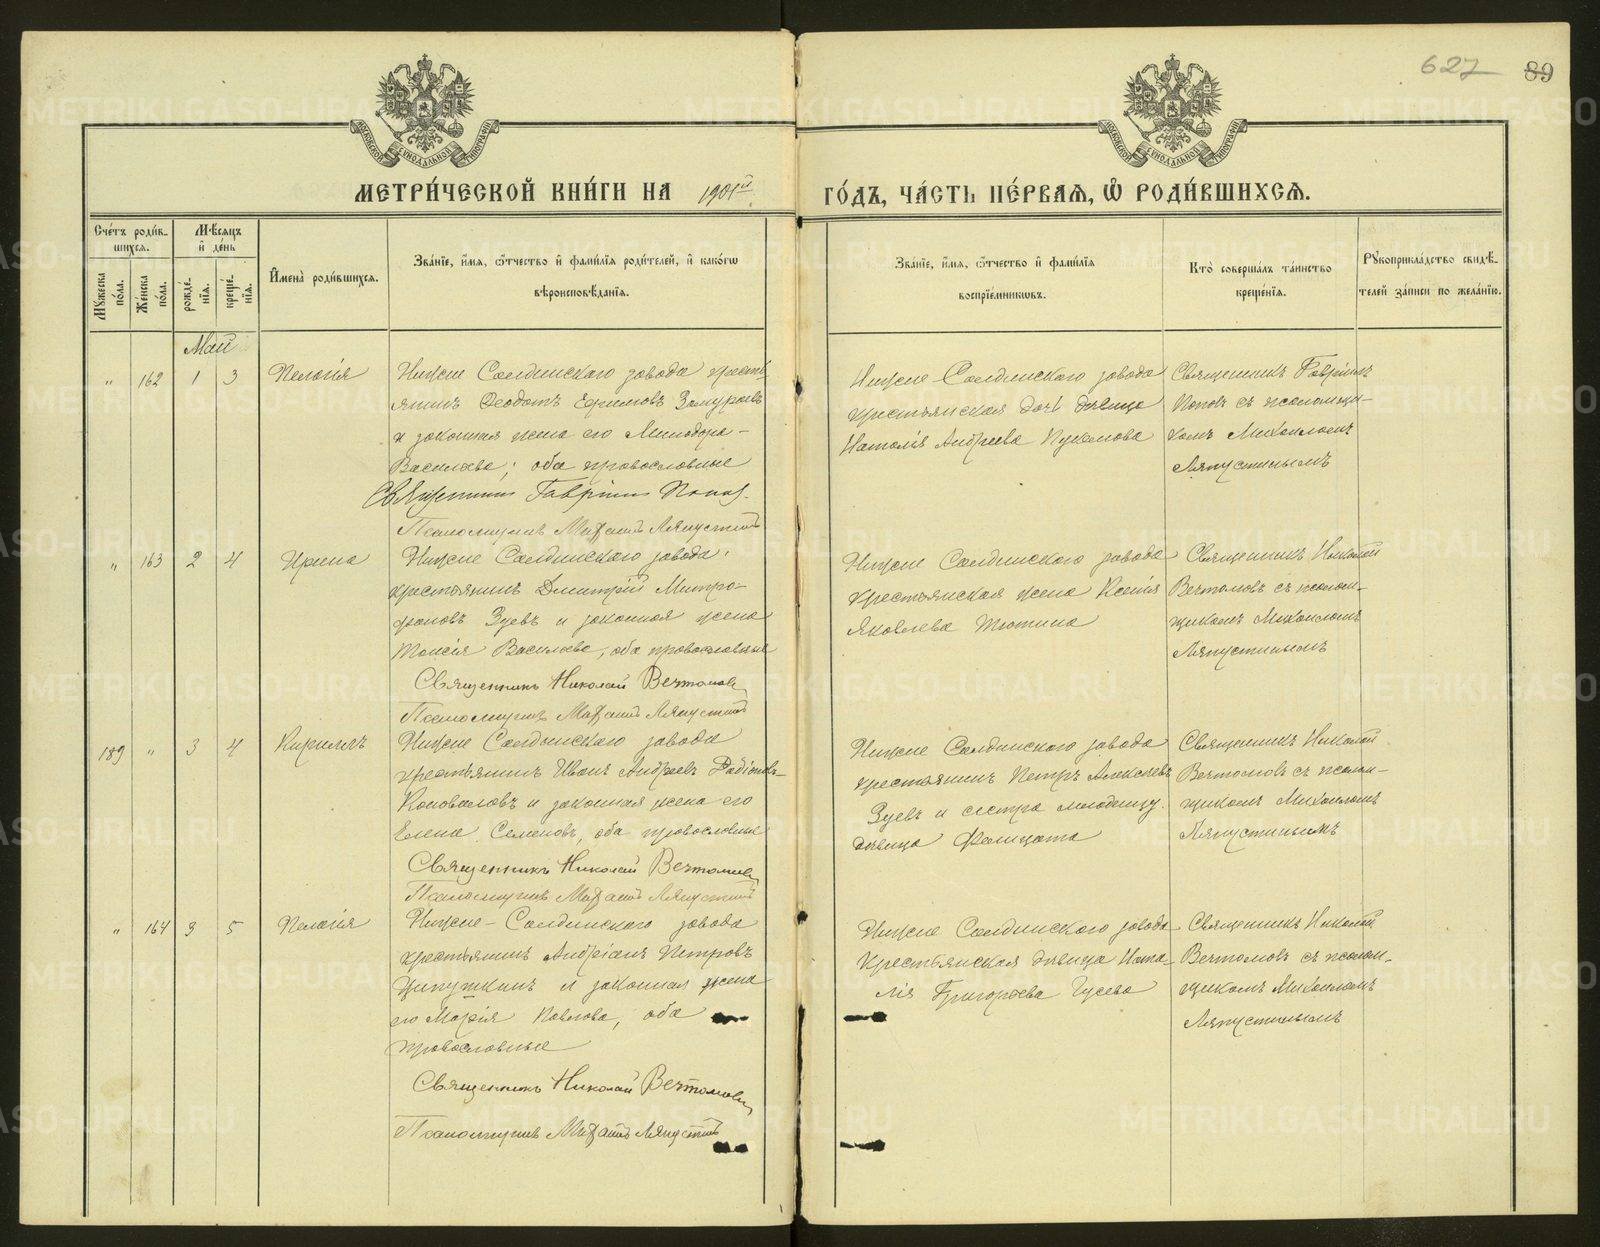 627 89
МОСКОВСКОЙ СѴНОДАЛЬНОЙ ТИПОГРАФІИ
МОСКОВСКОЙ СѴНОДАЛЬНОЙ ТИПОГРАФІИ
МЕТРИ́ЧЕСКОЙ КНИ́ГИ НА 1901й ГО́ДЪ, ЧА́СТЬ ПЕ́РВАЯ, Ѡ РОДИ́ВШИХСЯ.
Сче́тъ роди́в-
шихся.
Мꙋжеска по́ла.
Же́нска по́ла.
Мѣ́сяцъ
и҆ де́нь
рожде́-
нїя.
креще́-
нїя.
И҆мена̀ роди́вшихся.
Зва́нїе, и҆́мя, ѻ҆́тчество и҆ фами́лїя роди́телей, и҆ како́гѡ
вѣроисповѣ́данїя.
Зва́нїе, и҆́мя, ѻ҆́тчество и҆ фами́лїя
воспрїе́мникѡвъ.
Кто̀ соверша́лъ та́инство
креще́нїя.
Рꙋкоприкла́дство свидѣ́-
телей за́писи по жела́нїю.
Май
" 162 1 3 Пелагія
Нижне Салдинскаго завода кресть
янинъ Ѳеодотъ Ефимовъ Замураевъ
и законная жена его Минодора
Васильева; оба православные
Священникъ Гавріилъ Поповъ.
Псаломщикъ Михаилъ Ляпустинъ
Нижне-Салдинскаго завода
крестьянская дочь дѣвица
Наталія Андреева
Священникъ Гавріилъ
Поповъ съ псаломщи-
комъ Михаиломъ
Ляпустинымъ
" 163 2 4 Ирина
Нижне Салдинскаго завода
крестьянинъ Димитрій Митро-
фановъ Зуевъ и законная жена
Таисія Васильева, оба православные
Священникъ Николай Вечтомовъ
Псаломщикъ Михаилъ Ляпустинъ
Нижне Салдинскаго завода
крестьянская жена Ксенія
Яковлева Тютина
Священникъ Николай
Вечтомовъ съ псалом-
щикомъ Михаиломъ
Ляпустинымъ
189 " 3 4 Кириллъ
Нижне Салдинскаго завода
крестьянинъ Иванъ Андреевъ Радіоновъ-
Коноваловъ и законная жена его
Елена Семенова, оба православные
Священникъ Николай Вечтомовъ
Псаломщикъ Михаилъ Ляпустинъ
Нижне Салдинскаго завода
крестьянинъ Петръ Алексѣевъ
Зуевъ и сестра младенцу
дѣвица Фелицата
Священникъ Николай
Вечтомовъ съ псалом-
щикомъ Михаиломъ
Ляпустинымъ
" 164 3 5 Пелагія
Нижне-Салдинскаго завода
крестьянинъ Андріанъ Петровъ
Ципушкинъ и законная жена
его Марія Павлова, оба
православные
Священникъ Николай Вечтомовъ
Псаломщикъ Михаилъ Ляпустинъ
Нижне Салдинскаго завода
крестьянская дѣвица Ната-
лія Григорьева Гусева
Священникъ Николай
Вечтомовъ съ псалом-
щикомъ Михаиломъ
Ляпустинымъ
METRIKI.GASO-URAL.RU